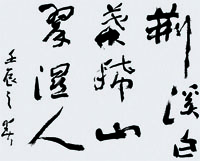 荆溪白
葉稀山
翠湿人
壬辰之